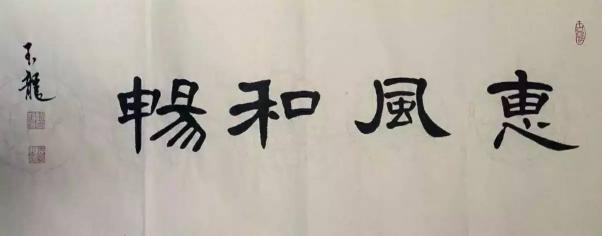 惠風和暢
玉龍